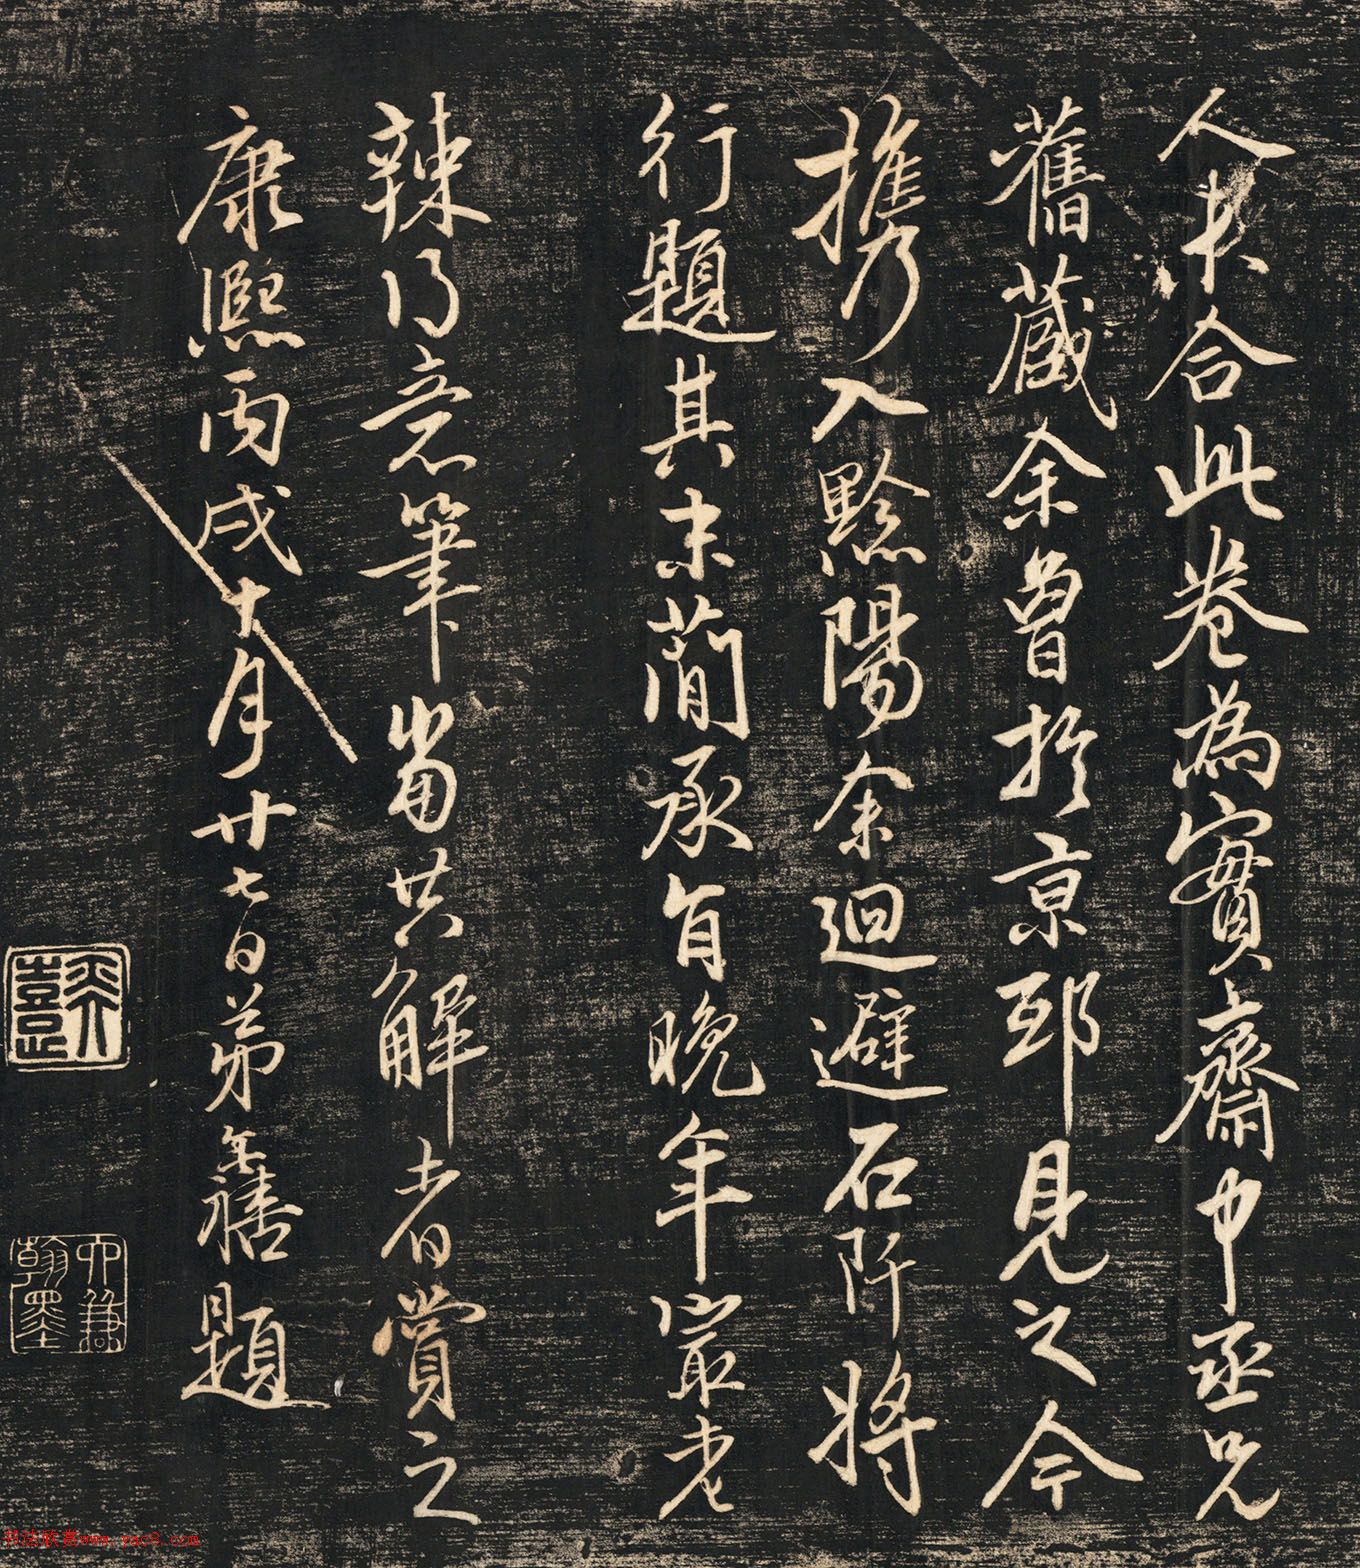 人未合此卷為實齋中丞兄
舊藏余曾於京邸見之今
攜入黔陽余迴避石阡將
行題其末簡承旨晚年最老
辣得意筆當共解者賞之
康熙丙戌十月廿七日弟無禧題
翰墨
书法欣赏www.yac8.com